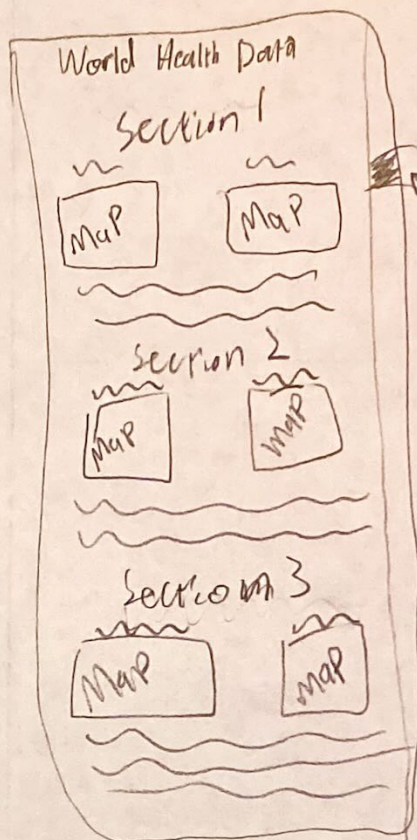 World Health Data
Section 1
Map Map
Section 2
Map Map
Section 3
Map Map